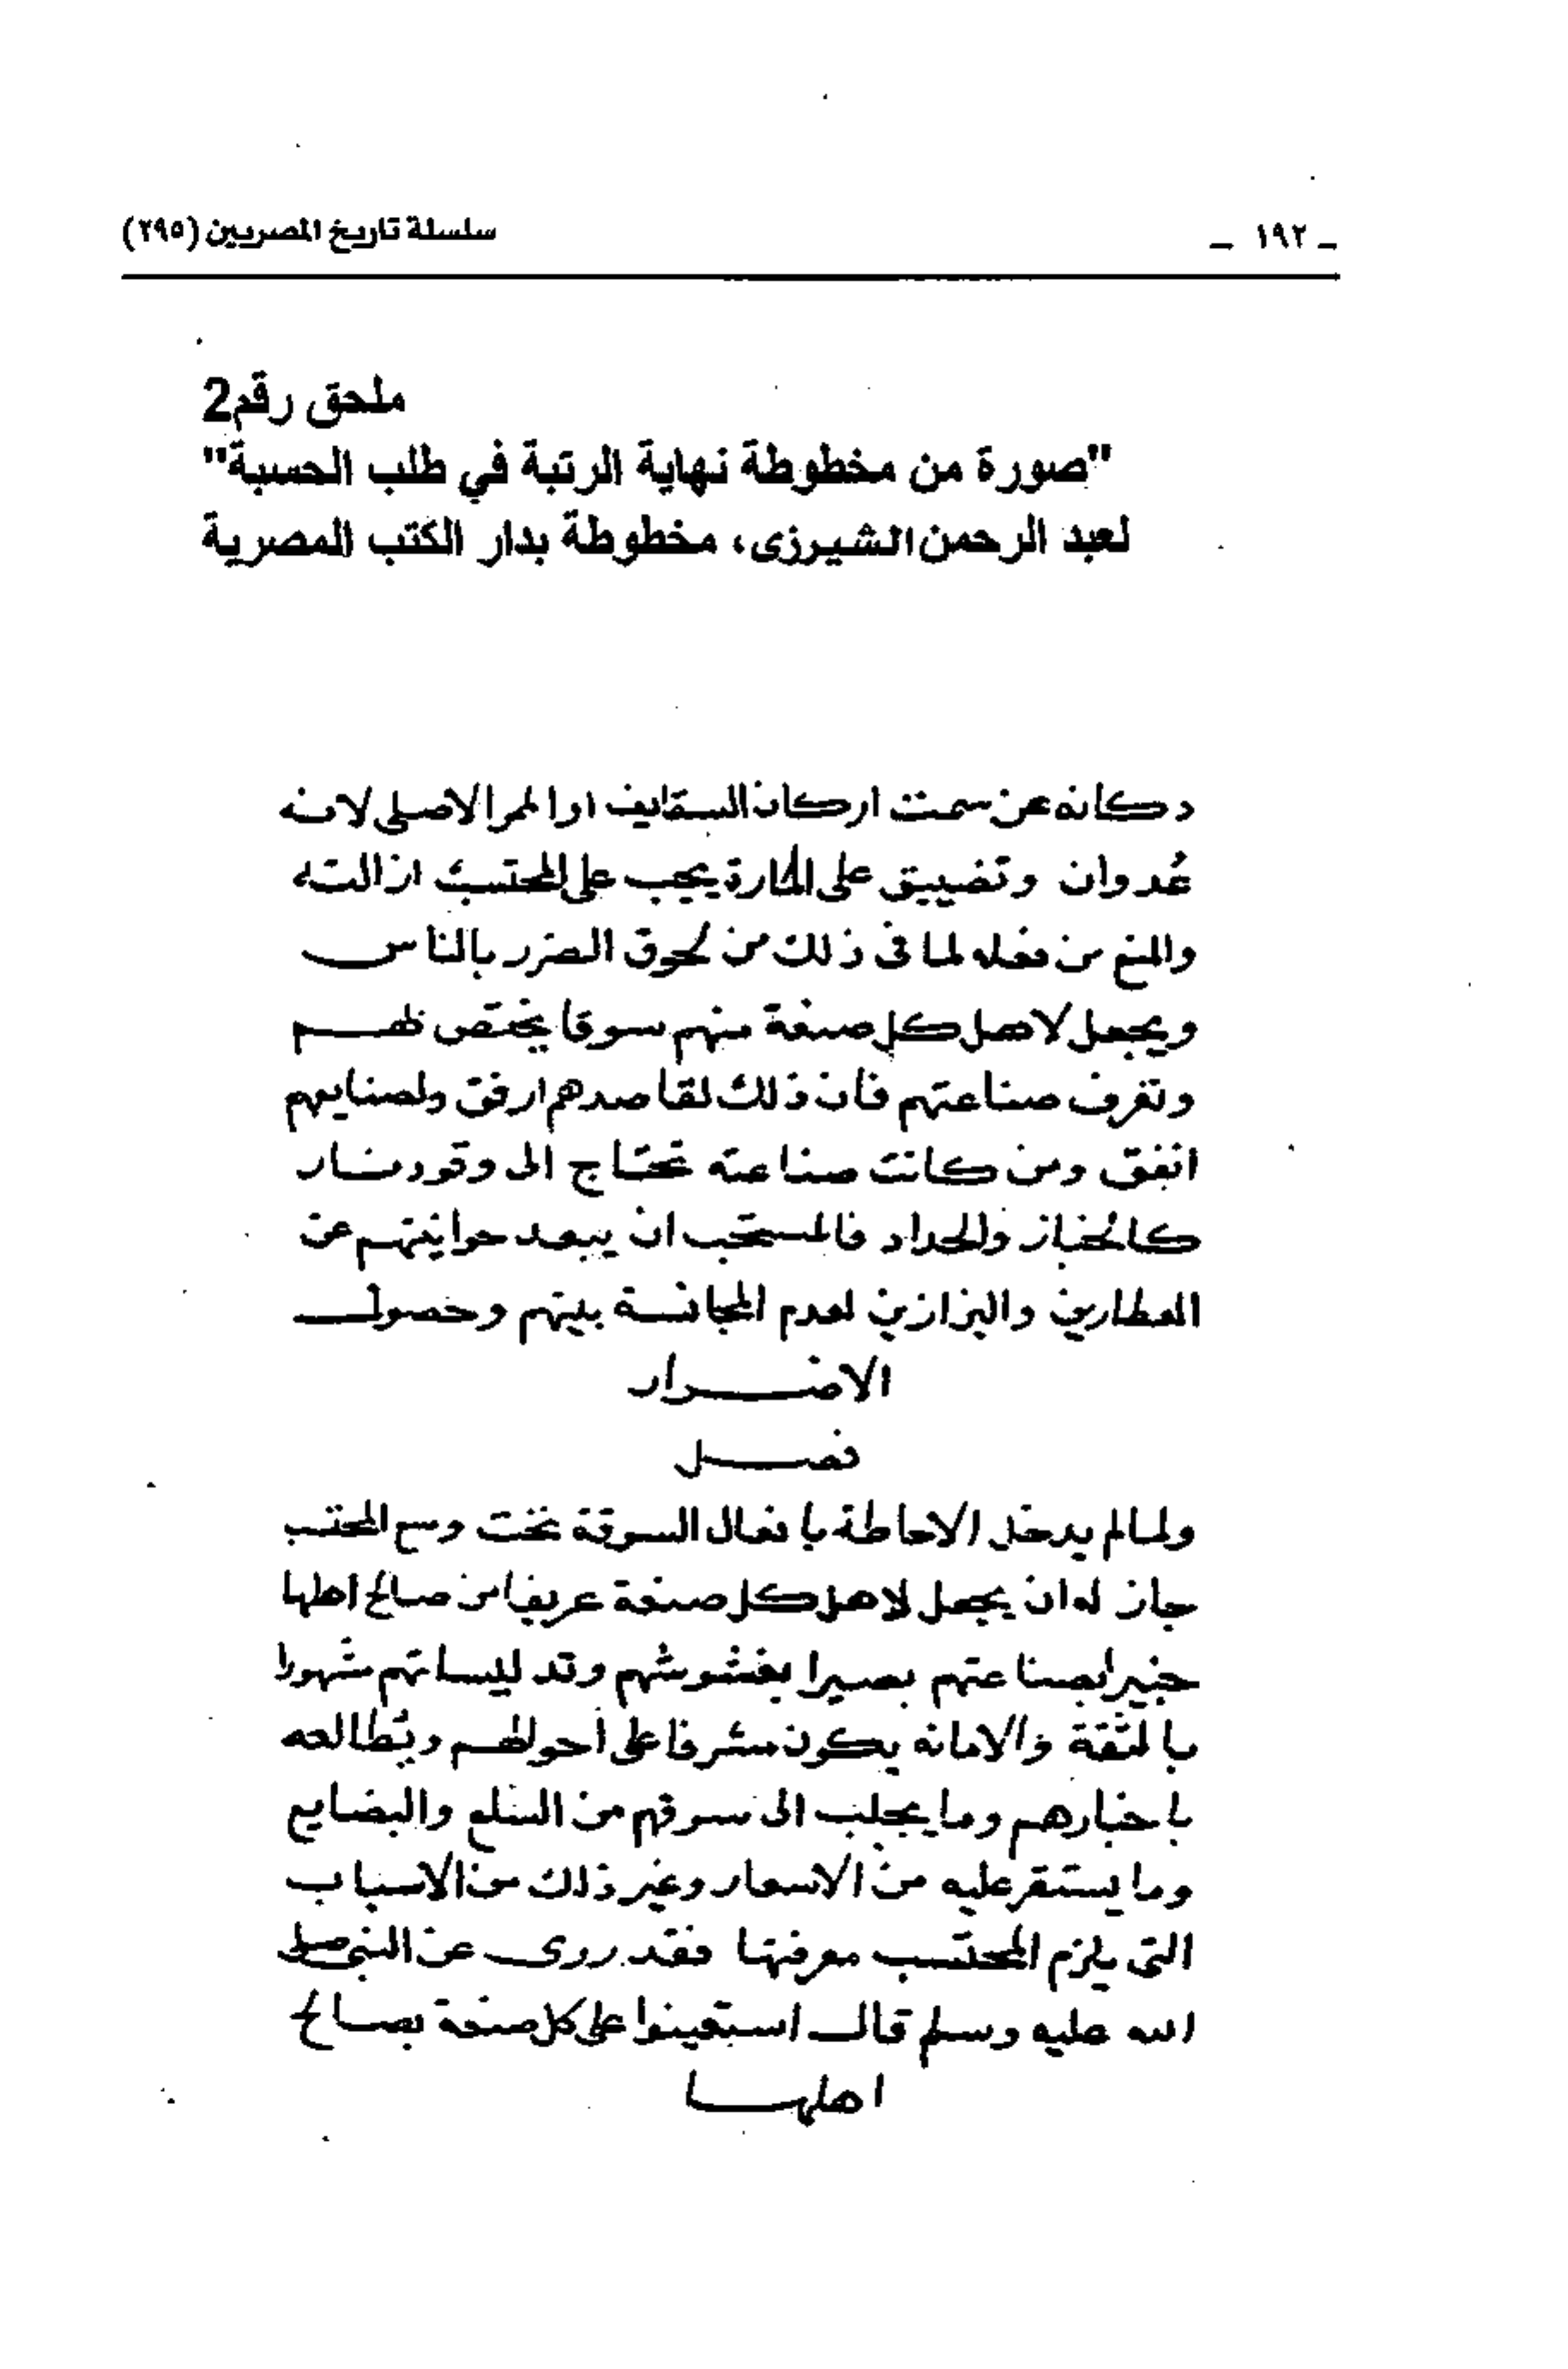 ـ ١٩٢ ـ
سلسلة تاريخ المصريين (٢٩٥)
ملحق رقم2
"صورة من مخطوطة نهاية الرتبة في طلب الحسبة"
لعبد الرحمن الشيرزى، مخطوطة بدار الكتب المصرية
دكانه عن سمت اركان السقايف او الممر الاصلى لانه
عُدوان وتضييق على المارة يجب على المحتسب ازالته
والمنع من فعله لما فى ذلك من لحوق الضرر بالناس
ويجعل لاهل كل صنعة منهم سوقا يختص لهم
وتعرف صناعتهم فان ذلك لقاصدهم ارفق ولصنايعهم
انفق ومن كانت صناعته تحتاج الى وقود نار
كالخباز والحداد فالمستحب ان يبعد حوانيتهم عن
العطارين والبزازين لعدم المجانسة بينهم وحصول
الاضرار
فصل
ولما لم يدخل الاحاطة بافعال السوقة تحت وسع المحتسب
جاز له ان يجعل لاهل كل صنعة عريفا من صالح اهلها
خبيرا بصناعتهم بصيرا بغشوشهم وتدليساتهم مشهورا
بالثقة والامانه يكون مشرفا على احوالهم ويُطالعه
باخبارهم وما يجلب الى سوقهم من السلع والبضايع
وما يستقر عليه من الاسعار وغير ذلك من الاسباب
التى يلزم المحتسب معرفتها فقد روى عن النبى صلى
الله عليه وسلم قال استعينوا على كل صنعة بصالح
اهلها